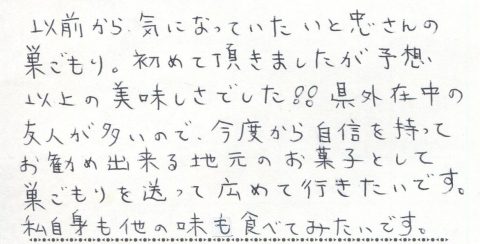 以前から、気になっていたいと忠さんの
巣ごもり。初めて頂きましたが予想、
以上の美味しさでした!!県外在中の
友人が多いので、今度から自信を持って
お勧め出来る地元のお菓子として
巣ごもりを送って広めて行きたいです。
私自身も他の味も食べてみたいです。